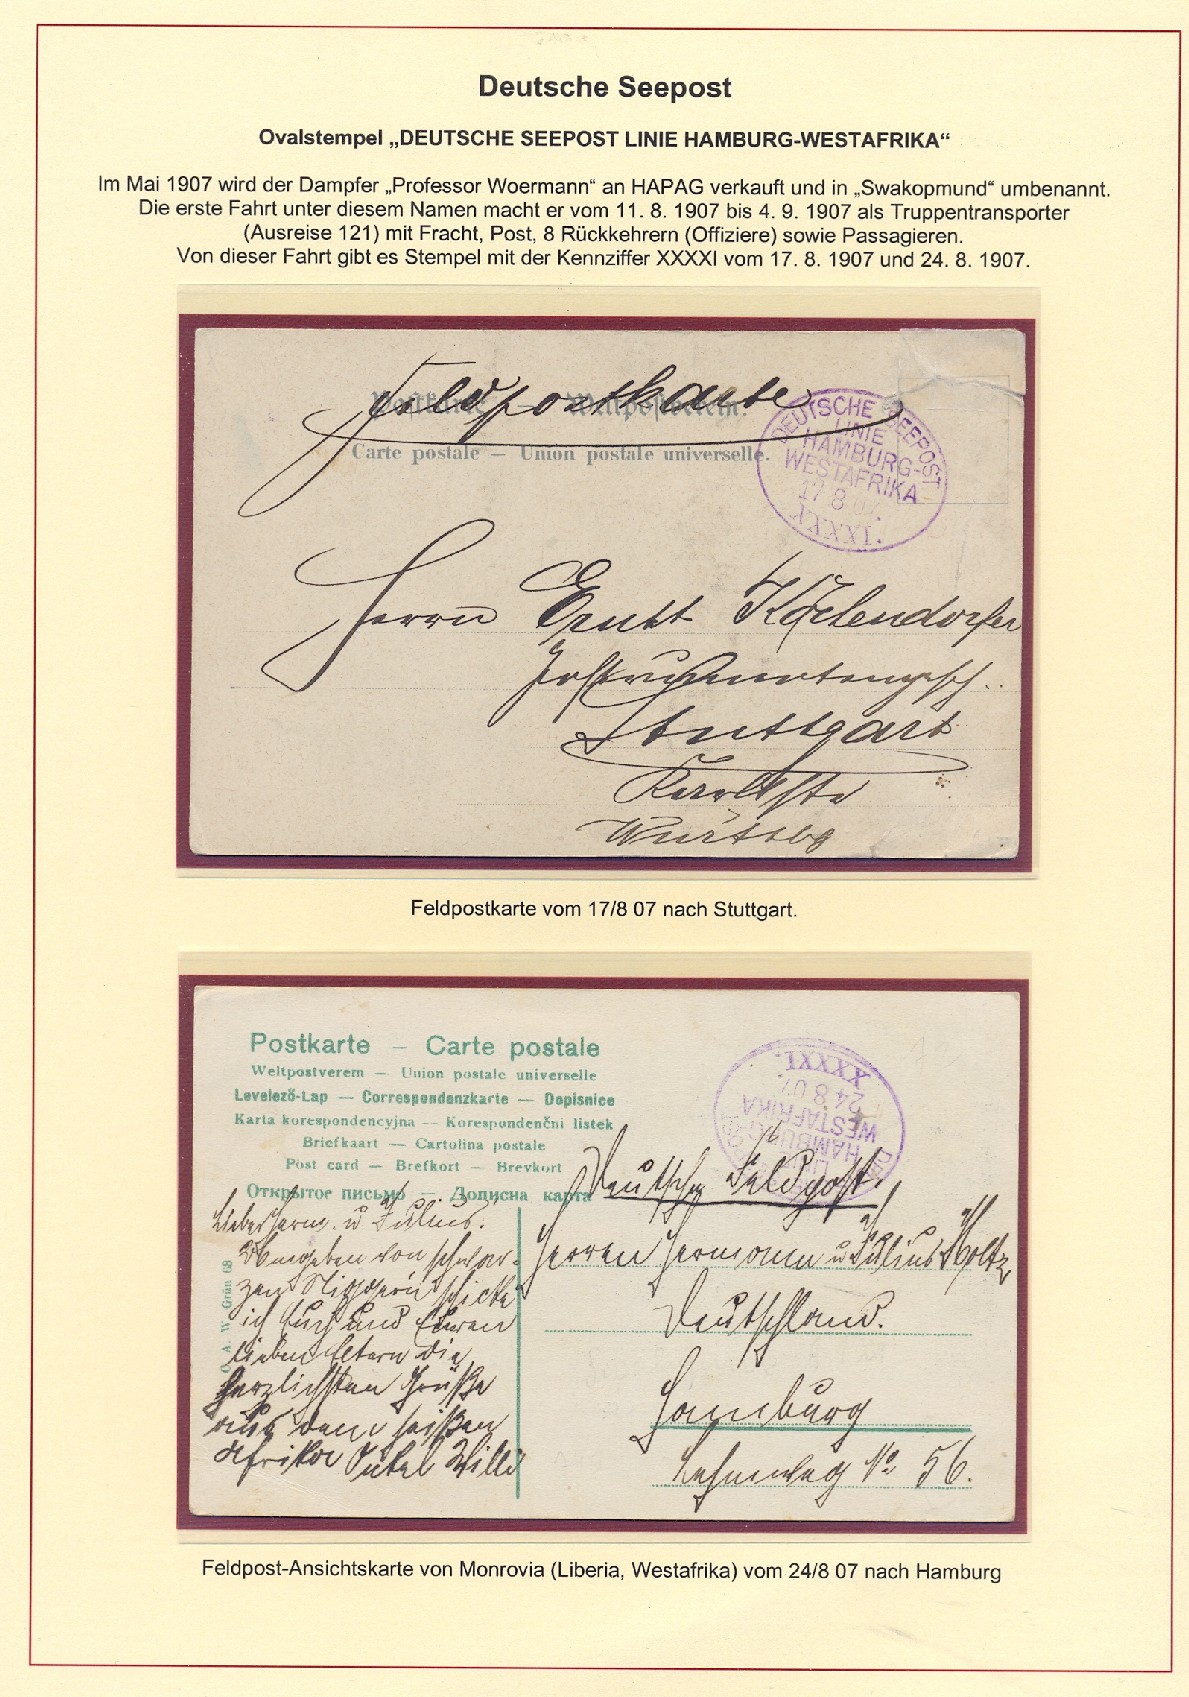 Deutsche Seepost
Ovalstempel „DEUTSCHE SEEPOST LINIE HAMBURG-WESTAFRIKA“
Im Mai 1907 wird der Dampfer „Professor Woermann“ an HAPAG verkauft und in „Swakopmund“ umbenannt.
Die erste Fahrt unter diesem Namen macht er vom 11. 8. 1907 bis 4. 9. 1907 als Truppentransporter
(Ausreise 121) mit Fracht, Post, 8 Rückkehrern (Offiziere) sowie Passagieren.
Von dieser Fahrt gibt es Stempel mit der Kennziffer XXXXI vom 17. 8. 1907 und 24. 8. 1907.
Feldpostkarte
Postkarte Weltpostverein.
Carte postale — Union postale universelle.
DEUTSCHE SEEPOST
LINIE
HAMBURG-
WESTAFRIKA
17 8 07.
XXXXI.
Herrn Ernst
Stuttgart
Württbg
Feldpostkarte vom 17/8 07 nach Stuttgart.
Postkarte — Carte postale
Weltpostverem — Union postale universelle
Levelező-Lap — Correspondenzkarte — Dopisnice
Karta korespondencyjna — Korespondenčni listek
Briefkaart — Cartolina postale
Post card — Brefkort — Brevkort
Открытое письмо — Дописна карта
LINIE
HAMBURG-
WESTAFRIKA
24 8 07.
XXXXI.
Deutsche Feldpost.
Herren Hermann u Julius Holtz
Deutschland.
Hamburg
No 56.
Lieber Herm. u Julius!
Umgeben von schwar-
zen Niggern schicke
ich Euch und Euren
lieben Eltern die
herzlichsten Grüße
aus dem heißen
Afrika Onkel Willi
O. A. W. Grün 68
Feldpost-Ansichtskarte von Monrovia (Liberia, Westafrika) vom 24/8 07 nach Hamburg